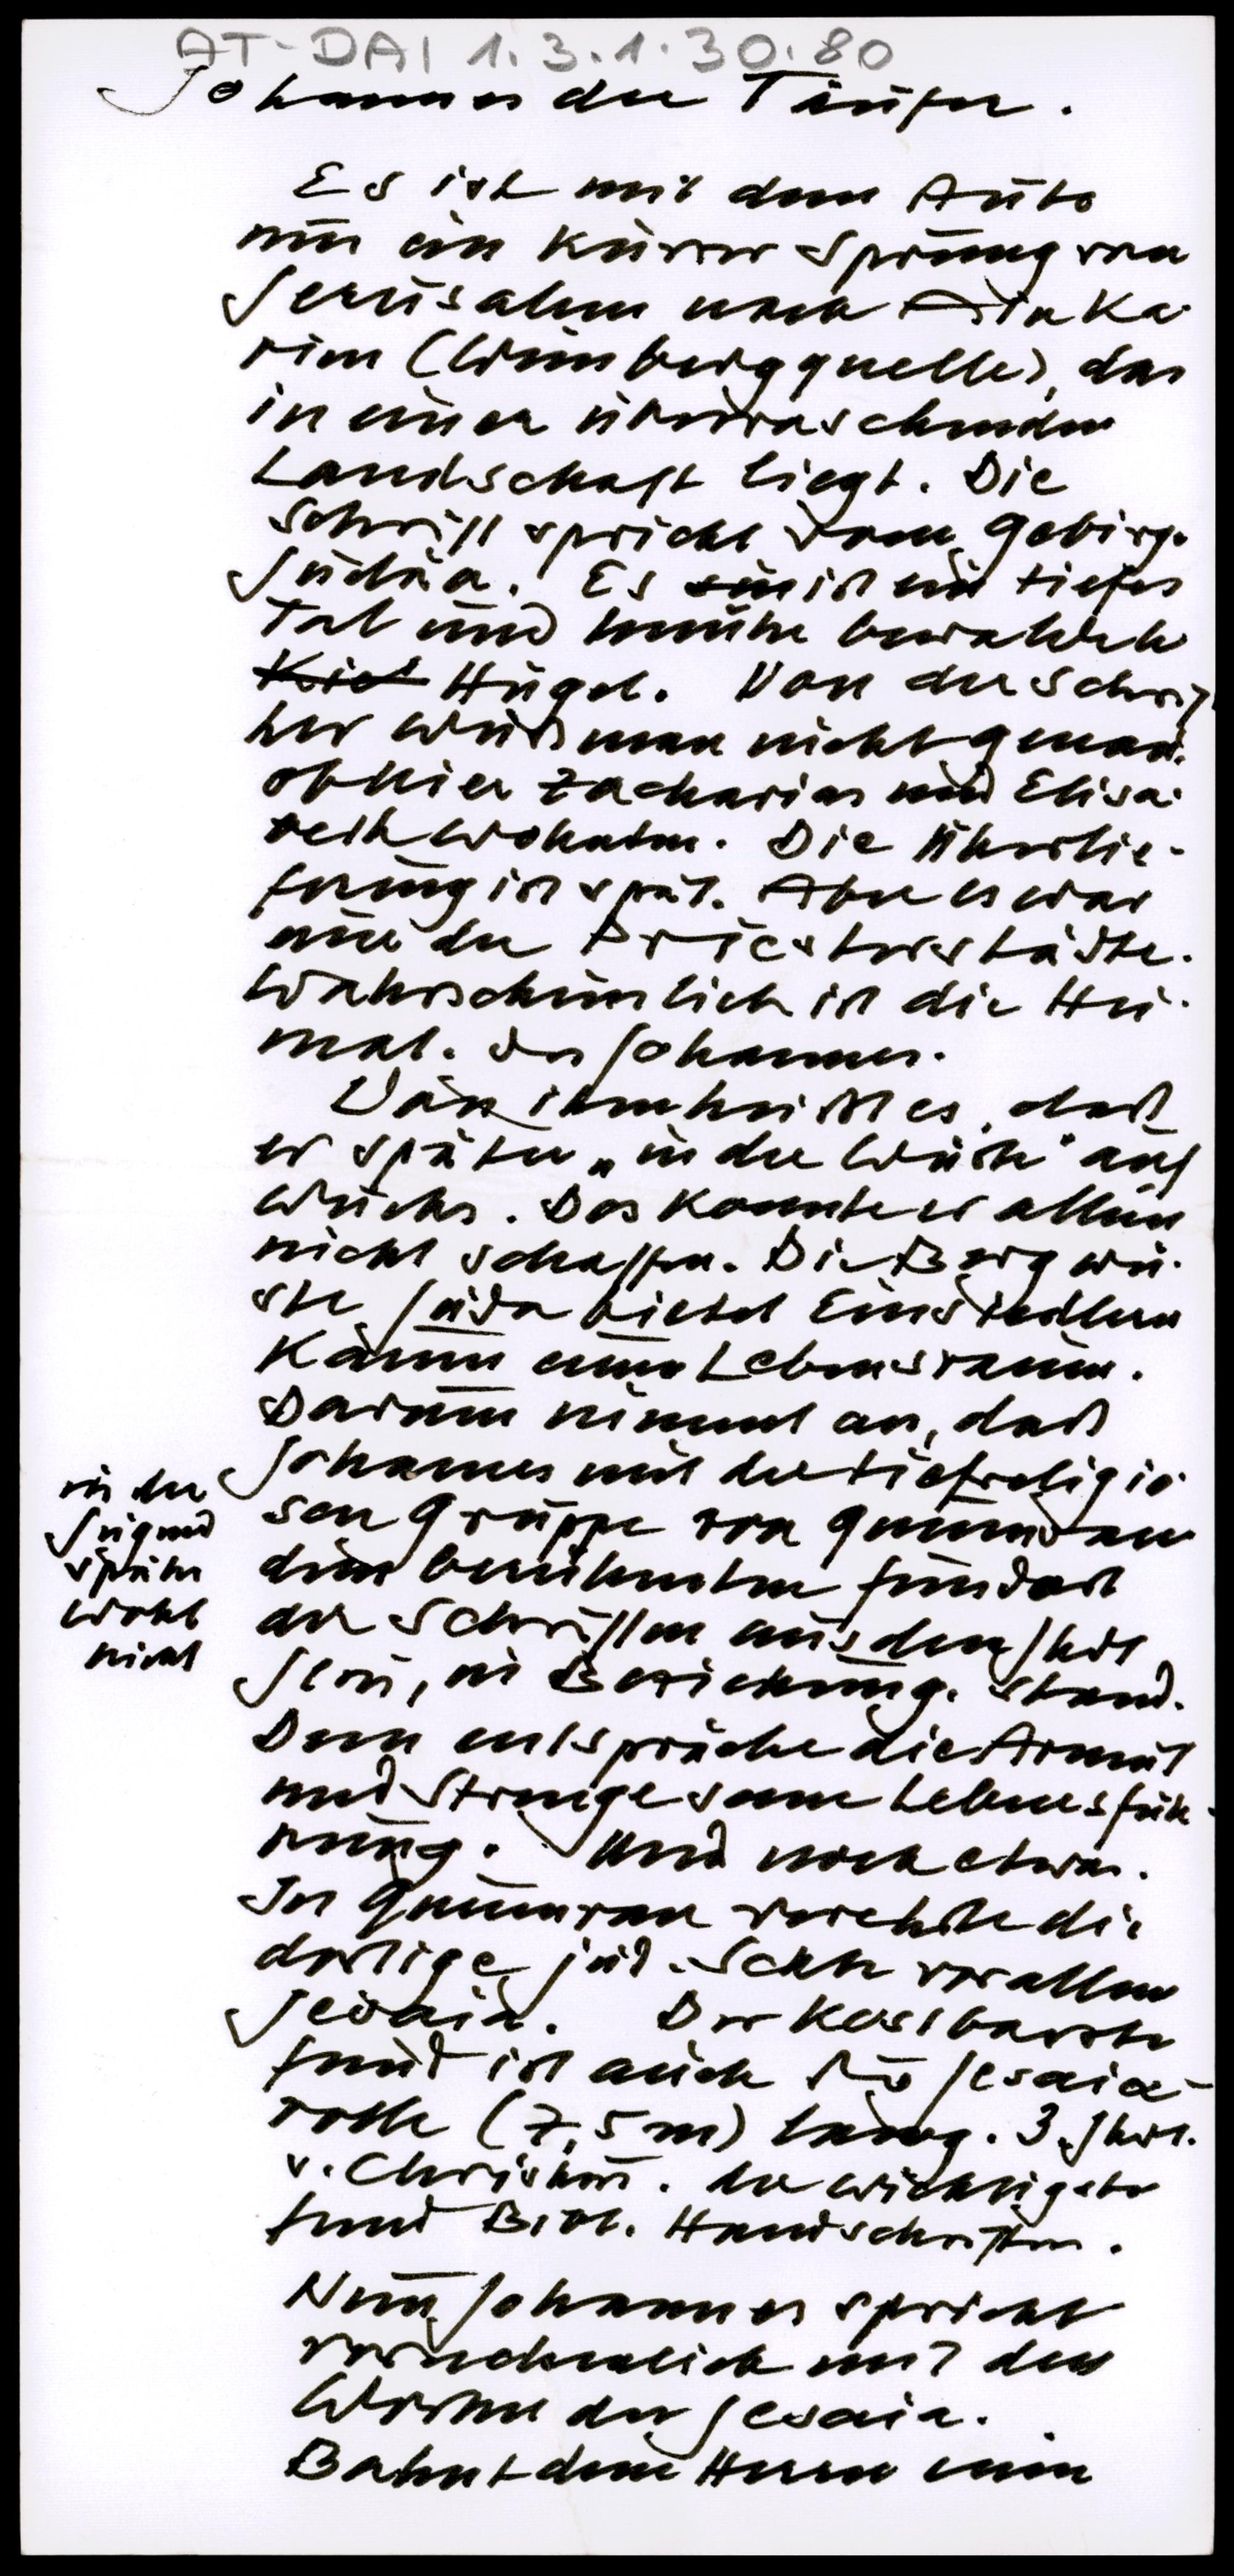 AT-DAI 1.3.1.30.80
Johannes der Täufer.
Es ist mit dem Auto
nur ein kurzer Sprung von
Jerusalem nach Ain Ka-
rim (Weinbergquelle), das
in einer überraschenden
Landschaft liegt. Die
Schrift spricht vom Gebirge
Judäa. Es ist ein tiefes
Tal und heute bewaldete
Hügel. Von der Schrift
her weiß man nicht genau,
ob hier Zacharias und Elisa-
beth wohnten. Die Überlie-
ferung ist spät. Aber es war
eine der Priesterstädte.
Wahrscheinlich ist die Hei-
mat. des Johannes.
Von ihm heißt es, daß
er später „in der Wüste" auf
wuchs. Das konnte er allein
nicht schaffen. Die Bergwü-
ste Juda bietet Einsiedlern
kaum einen Lebensraum.
Darum nimmt an, daß
Johannes mit der tiefreligiö-
in der
Jugend
später
wohl
nicht
sen Gruppe von Qumran
dem berühmten Fundort
der Schriften aus der Zeit
Jesu, in Beziehung. stand.
Dem entspräche die Armut
und Strenge seine Lebensfüh-
rung. Und noch etwas.
In Qumran verehrte die
dortige jüd. Sekte vor allem
Jesaia. Der kostbarste
Fund ist auch die Jesaia-
rolle (7,5 m) lang. 3. Jhrt.
v. Christus. der wichtigste
Fund Bibl. Handschriften.
Nun Johannes spricht
vornehmlich mit den
Worten des Jesaia.
Bahnt dem Herrn einen